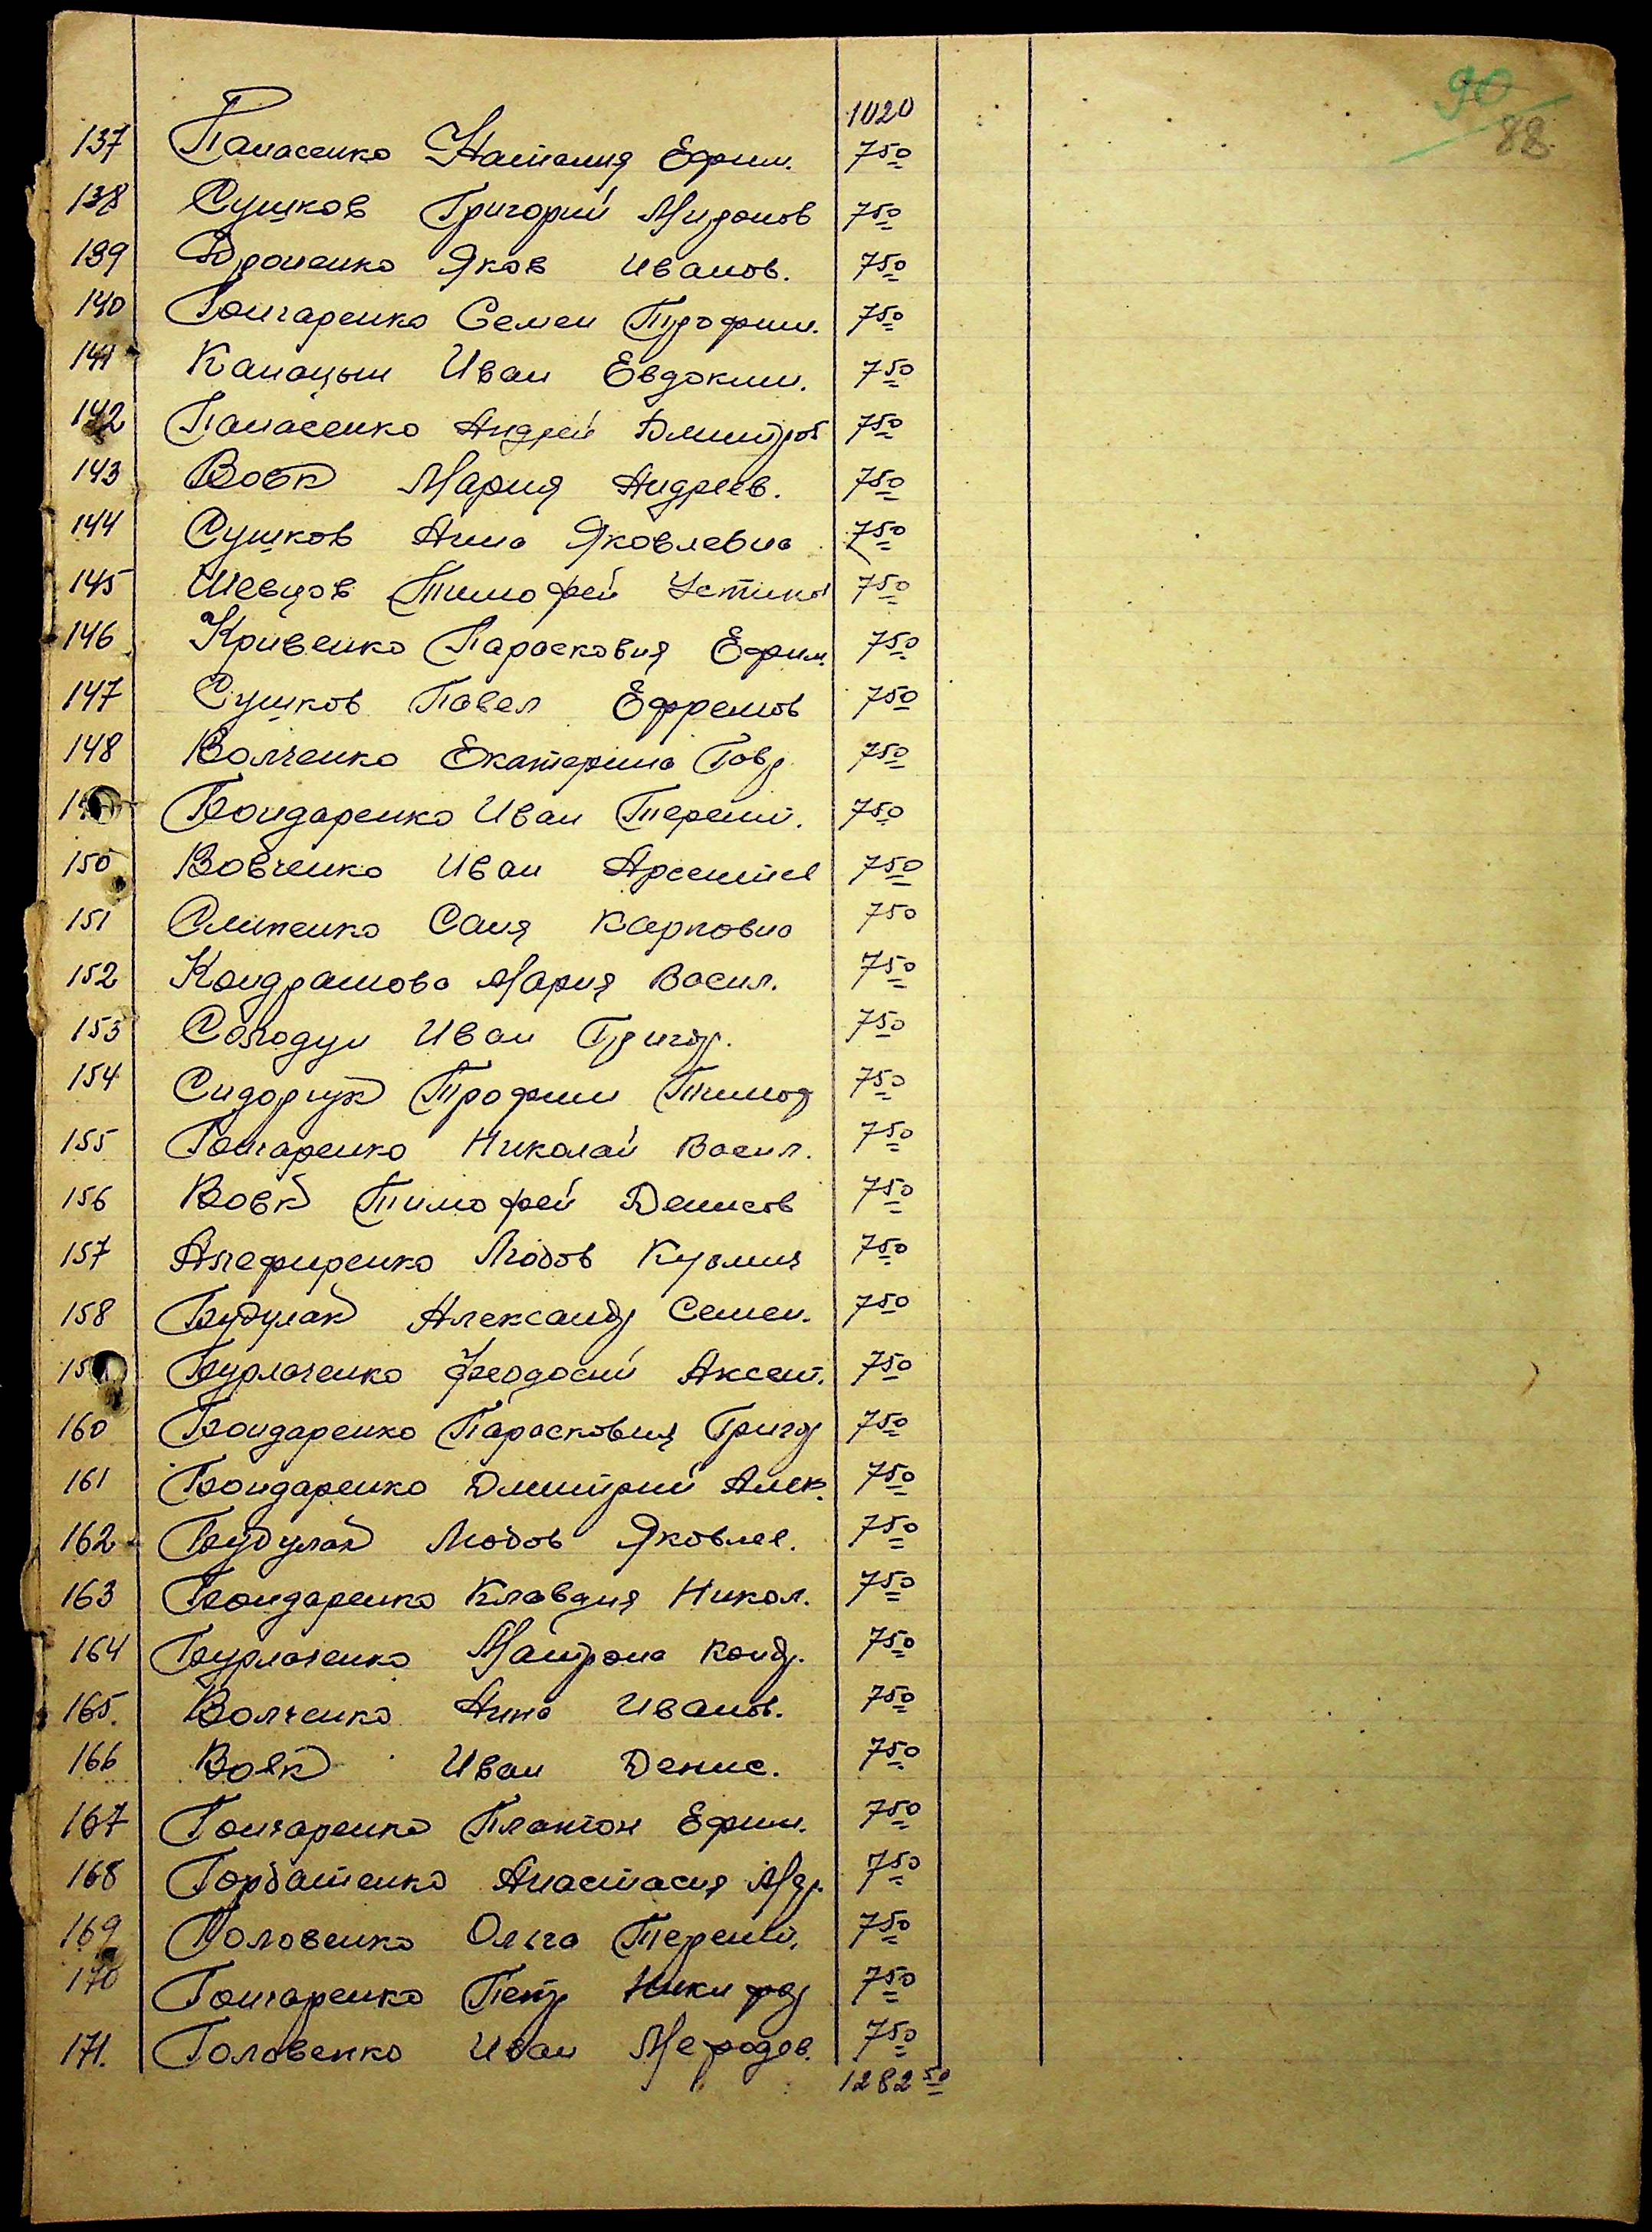 90
88
1020
137 Панасенко Наталия Ефим. 7 50
138 Сушков Григорий Миронов 7 50
139 Дроненко Яков Иванов. 7 50
140 Гончаренко Семен Трофим. 7 50
141 Канацын Иван Евдоким. 7 50
142 Панасенко Андрей Дмитров 7 50
143 Вовк Мария Андреев. 7 50
144 Сушков Анна Яковлевна 7 50
145 Шевцов Тимофей Устинов 7 50
146 Кривенко Парасковия Ефим 7 50
147 Сушков Павел Ефремов 7 50
148 Волченко Екатерина Гавр 7 50
Бондаренко Иван Терент. 7 50
150 Вовченко Иван Арсентев 7 50
151 Слипенко Саня Карповна 7 50
152 Кондрашова Мария Васил. 7 50
153 Солодун Иван Григор. 7 50
154 Сидорчук Трофим Тимоф 7 50
155 Гончаренко Николай Васил. 7 50
156 Вовк Тимофей Денисов 7 50
157 Алефиренко Любов Кузмин 7 50
158 Будулак Александр Семен. 7 50
Бурлаченко Феодосий Аксент. 7 50
160 Бондаренко Парасковия Григор 7 50
161 Бондаренко Дмитрий Алек. 7 50
162 Будулак Любов Яковлев. 7 50
163 Бондаренко Клавдия Никол. 7 50
164 Бурлаченко Матрона Конд. 7 50
165. Волченко Анна Иванов. 7 50
166 Вовк Иван Денис. 7 50
167 Гончаренко Платон Ефим. 7 50
168 Горбатенко Анастасия 7 50
169 Головенко Ольга Терент. 7 50
170 Гончаренко Петр Никифор 7 50
171. Головенко Иван Мефодов. 7 50
1282 50